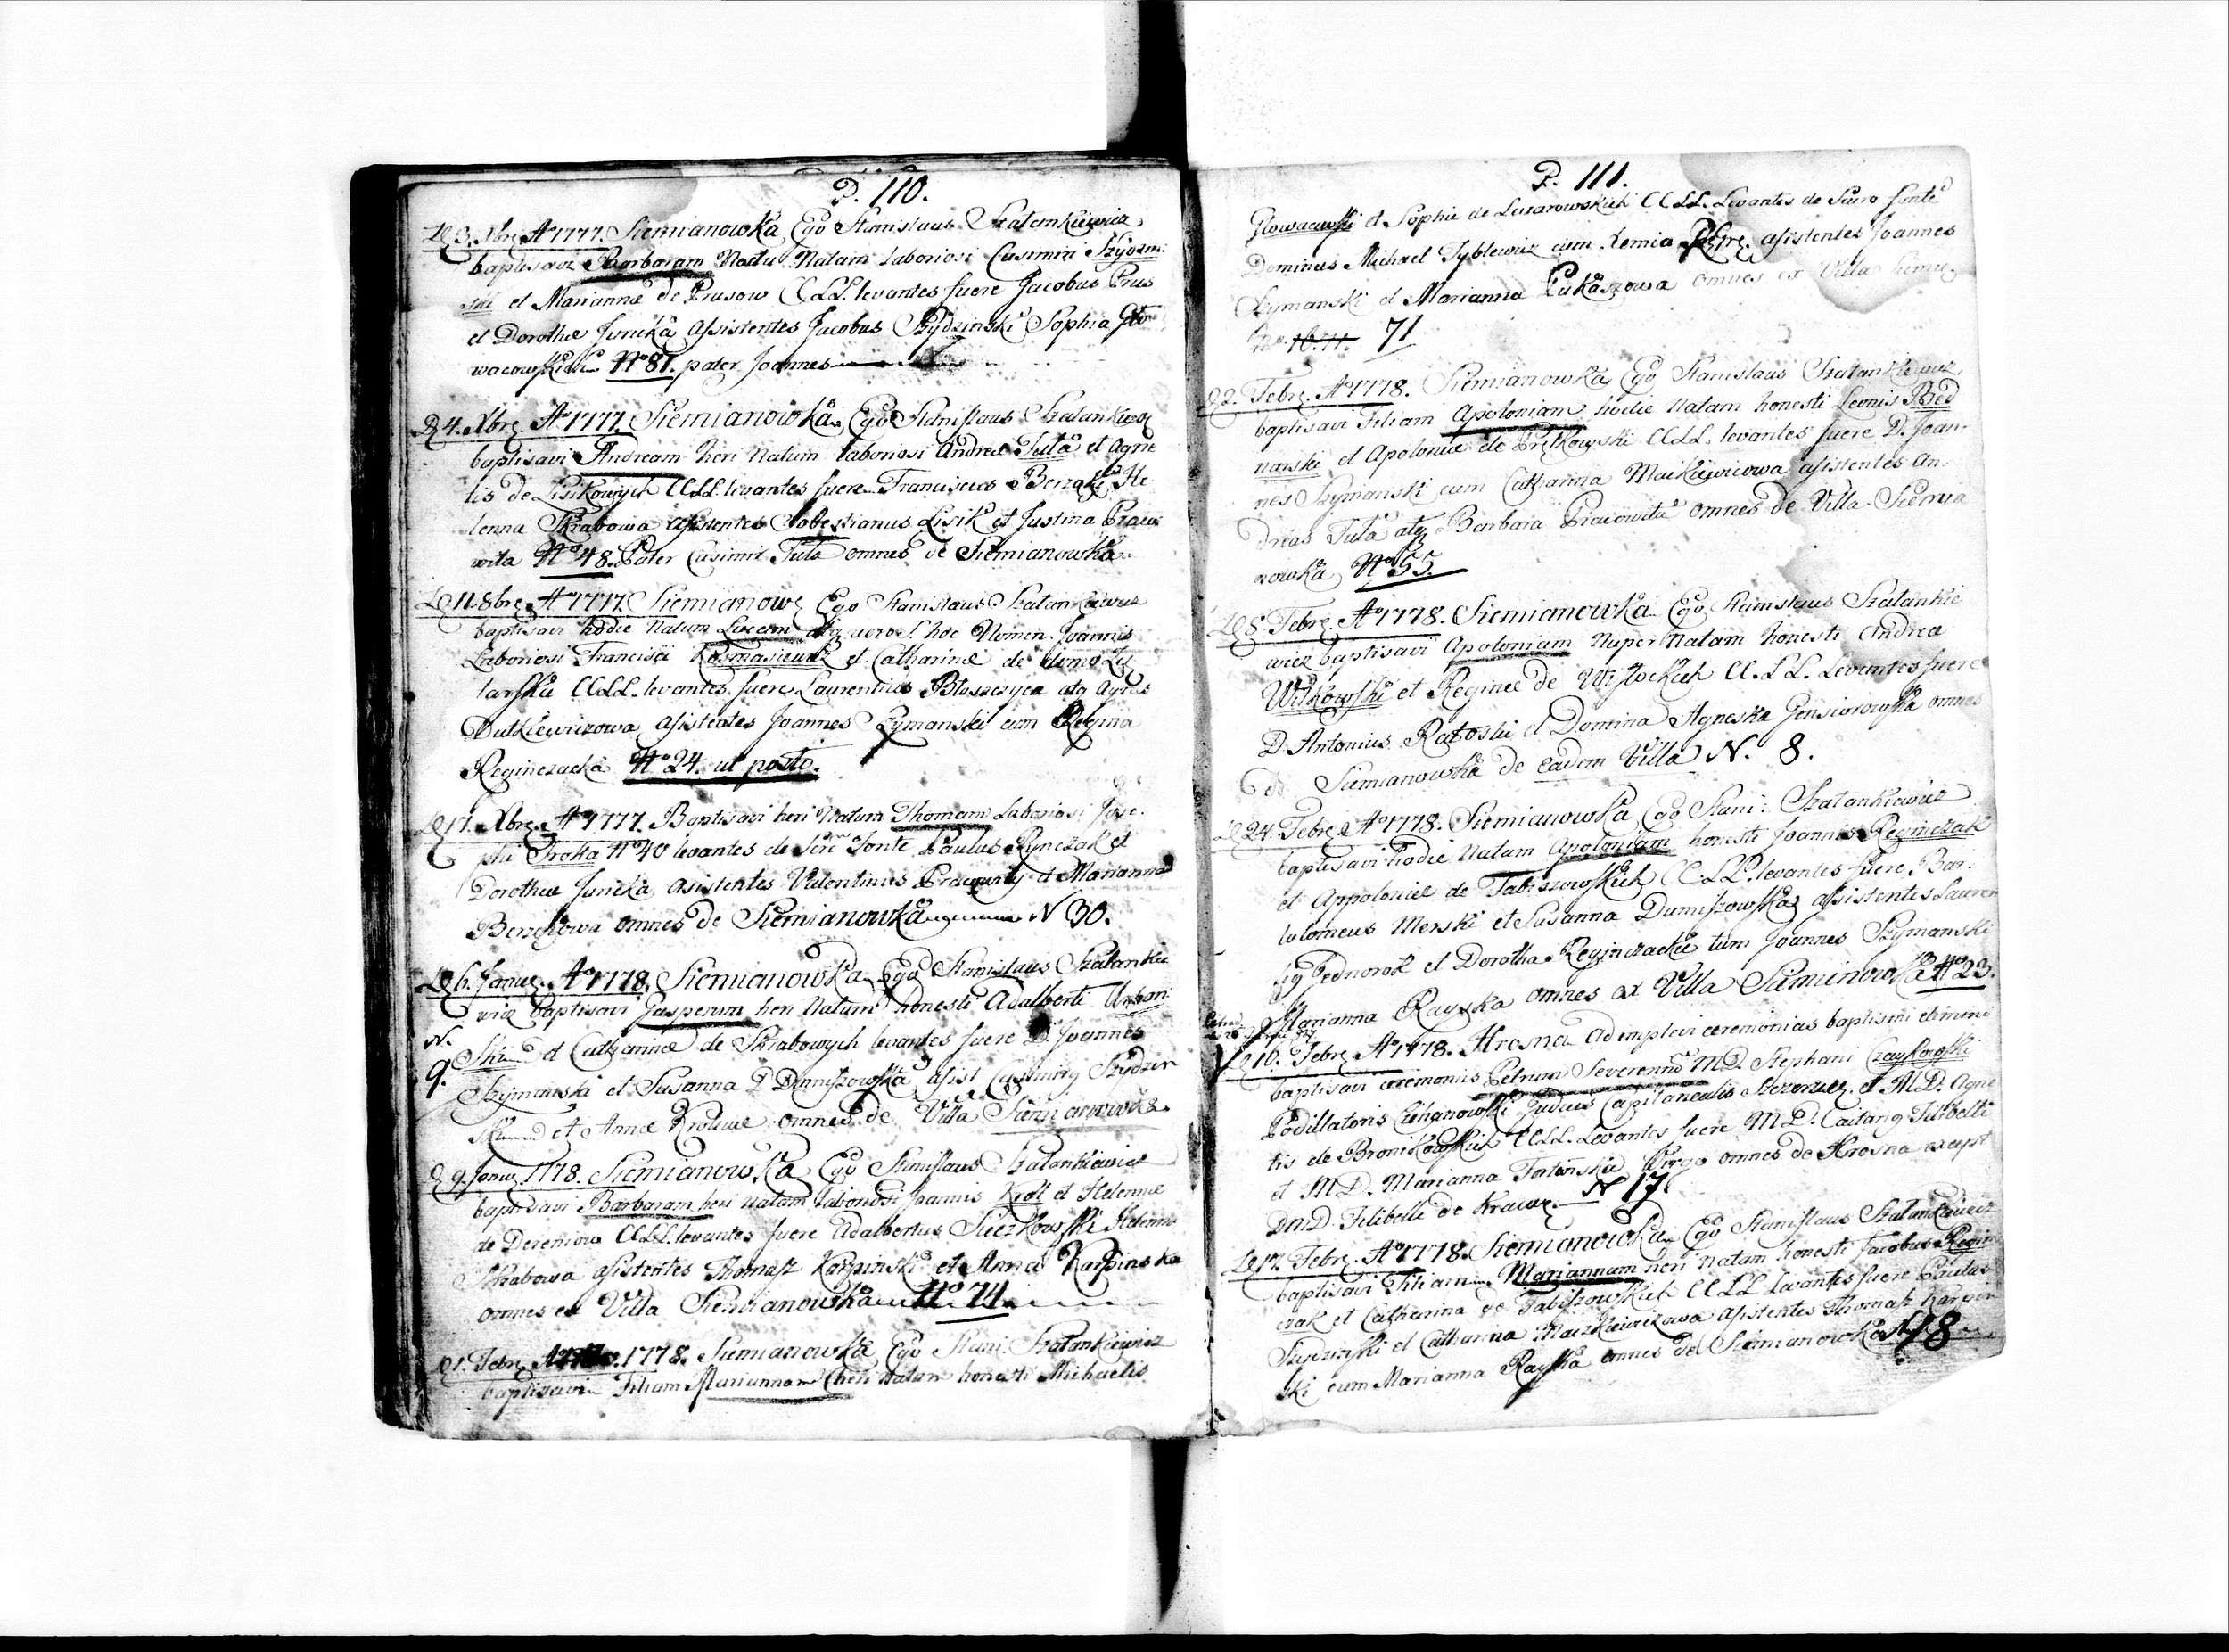 P. 110.
D 3. Xbrę A° 1777. Siemianowka Ego Stanislaus Szatenkiewicz
baptisavi Barbaram Noctu Natam laboriosi Casimiri Szydzin
ski et Mariannæ de Prusow CCLL. levantes fuere Jacobus Prus
et Dorothea Juncka assistentes Jacobus Szydzinski Sophia Glo
wacowskich N° 81. pater Joannes
D 4. Xbrę A° 1777. Siemianowka Ego Stanislaus Szatankiewicz
baptisavi Andream heri Natum laboriosi Andreæ Tuta et Agne
tis de Lisikowych CCLL. levantes fuere Franciscus Berzaki He
lenna Skrabowa assistentes Sobestianus Lisik et Justina Praco
wita N° 48. Pater Casimir Tuta omnes de Siemianowka
D 11. 8brę A° 1777. Siemianow Ego Stanislaus Szatankiewicz
baptisavi hodie Natum Lucam hoc Nomen Joannis
Laboriosi Francisci Kosmasiewicz et Catharinæ de domo
larska CCLL. levantes fuere Laurentius Bloszczyca atq Agnes
Dutkiewiczowa asistentes Joannes Szymanski cum Regina
Reginczacka N° 24. ut posto.
D 17. Xbrę A° 1777. Baptisavi heri Natum Thomam Laboriosi Jose.
phi Sroka N° 40 levantes de Fonte Paulus Rynczak et
Dorothea Juncka asistentes Valentinus Pracowity et Marianna
Berzekowa omnes de Siemianowka N 30.
D 6. Janua. A° 1778. Siemianowka Ego Stanislaus Szatankie
wicz baptisavi Gasperum heri Natum honesti Adalberti Urban
N. 9. Ski et Catharinæ de Skrabowych levantes fuere D. Joannes
Szymanski et Susanna D Dumiszowska asist Casimirg Szydzin
Ski et Anna Krolowa omnes de Villa Siemianowka.
D 9. Janua 1778. Siemianowka Ego Stanislaus Szatankiewicz
baptisavi Barbaram heri natam laboriosi Joannis Krol et Helennæ
de Dereniow CCLL. levantes fuere Adalbertus Sieczkowski Helenna
Skrabowa assistentes Thomasz Karpinski et Anna Karpinska
omnes ex Villa Siemianowka N° 74
D 1. Febrę 1778. Siemianowka Ego Stani. Szatankiewicz
baptisavi Filiam Mariannam heri natam honesti Michaelis
P. 111.
Glowacowski et Sophiæ de Lusarowskich CCLL. Levantes de Sacro fonte
Dominus Michael Tyblewicz cum assistentes Joannes
Szymanski et Marianna Lukaszowa omnes ex Villa Siemia
71
D 2. Febrę. A° 1778. Siemianowka Ego Stanislaus Szatankiewicz
baptisavi Filiam Apoloniam hodie Natam honesti Leonis Bed
narski et Apoloniæ de Pretkowski CCLL. levantes fuere D. Joan-
nes Szymanski cum Catharina Maikiewicowa assistentes An-
dreas Tuta atq Barbara Pracowita omnes de Villa Siemia
nowka N° 55.
D 8. Febrę A° 1778. Siemianowka Ego Stanislaus Szatankie
wicz baptisavi Apoloniam Nuper Natam honesti Andrea
Witkowski et Reginæ de Wisłockich CC.LL. Levantes fuere
D. Antonius Ratoski et Domina Agneska Gensiorowska omnes
de Siemianowka de eadem Villa N. 8.
D 24. Febrę A° 1778. Siemianowka Ego Stani: Szatankiewicz
baptisavi hodie Natam Apoloniam honesti Joannis Reginczak
et Appoloniæ de Tabiszowskich CC.LL. levantes fuere Bar:
tolomeus Merski et Susanna Dumiszowska assistentes Lauren
tig Jednorok et Dorotha Reginczackie tum Joannes Szymanski
Marianna Rayska omnes ex Villa Sieminowka N° 23.
D 10. Febrę A° 1778. Hrosna adimplevi ceremonias baptismi
baptisavi ceremoniis Petrum Severennu M.D. Stephani Czaykowski
Podillatoris Ciehanowski Judicis Capitanealis et M.D. Agne
tis de Bronikowskich CCLL. Levantes fuere M.D. Caitang Filibelli
et M.D. Marianna Virgo omnes de Hrosna except
D.M.D. Filibelli de N 17.
D 17. Febrę. A° 1778. Siemianowka Ego Stanislaus Szatankiewicz
baptisavi Filiam Mariannam heri Natam honesti Jacobus Regin
czak et Catharina de Tabiszowskich CCLL levantes fuere Paulus
Szydzinski et Catharina Maizkiewiczowa assistentes Thomasz Karpin
ski cum Marianna Rayska omnes de Siemianowka N 18